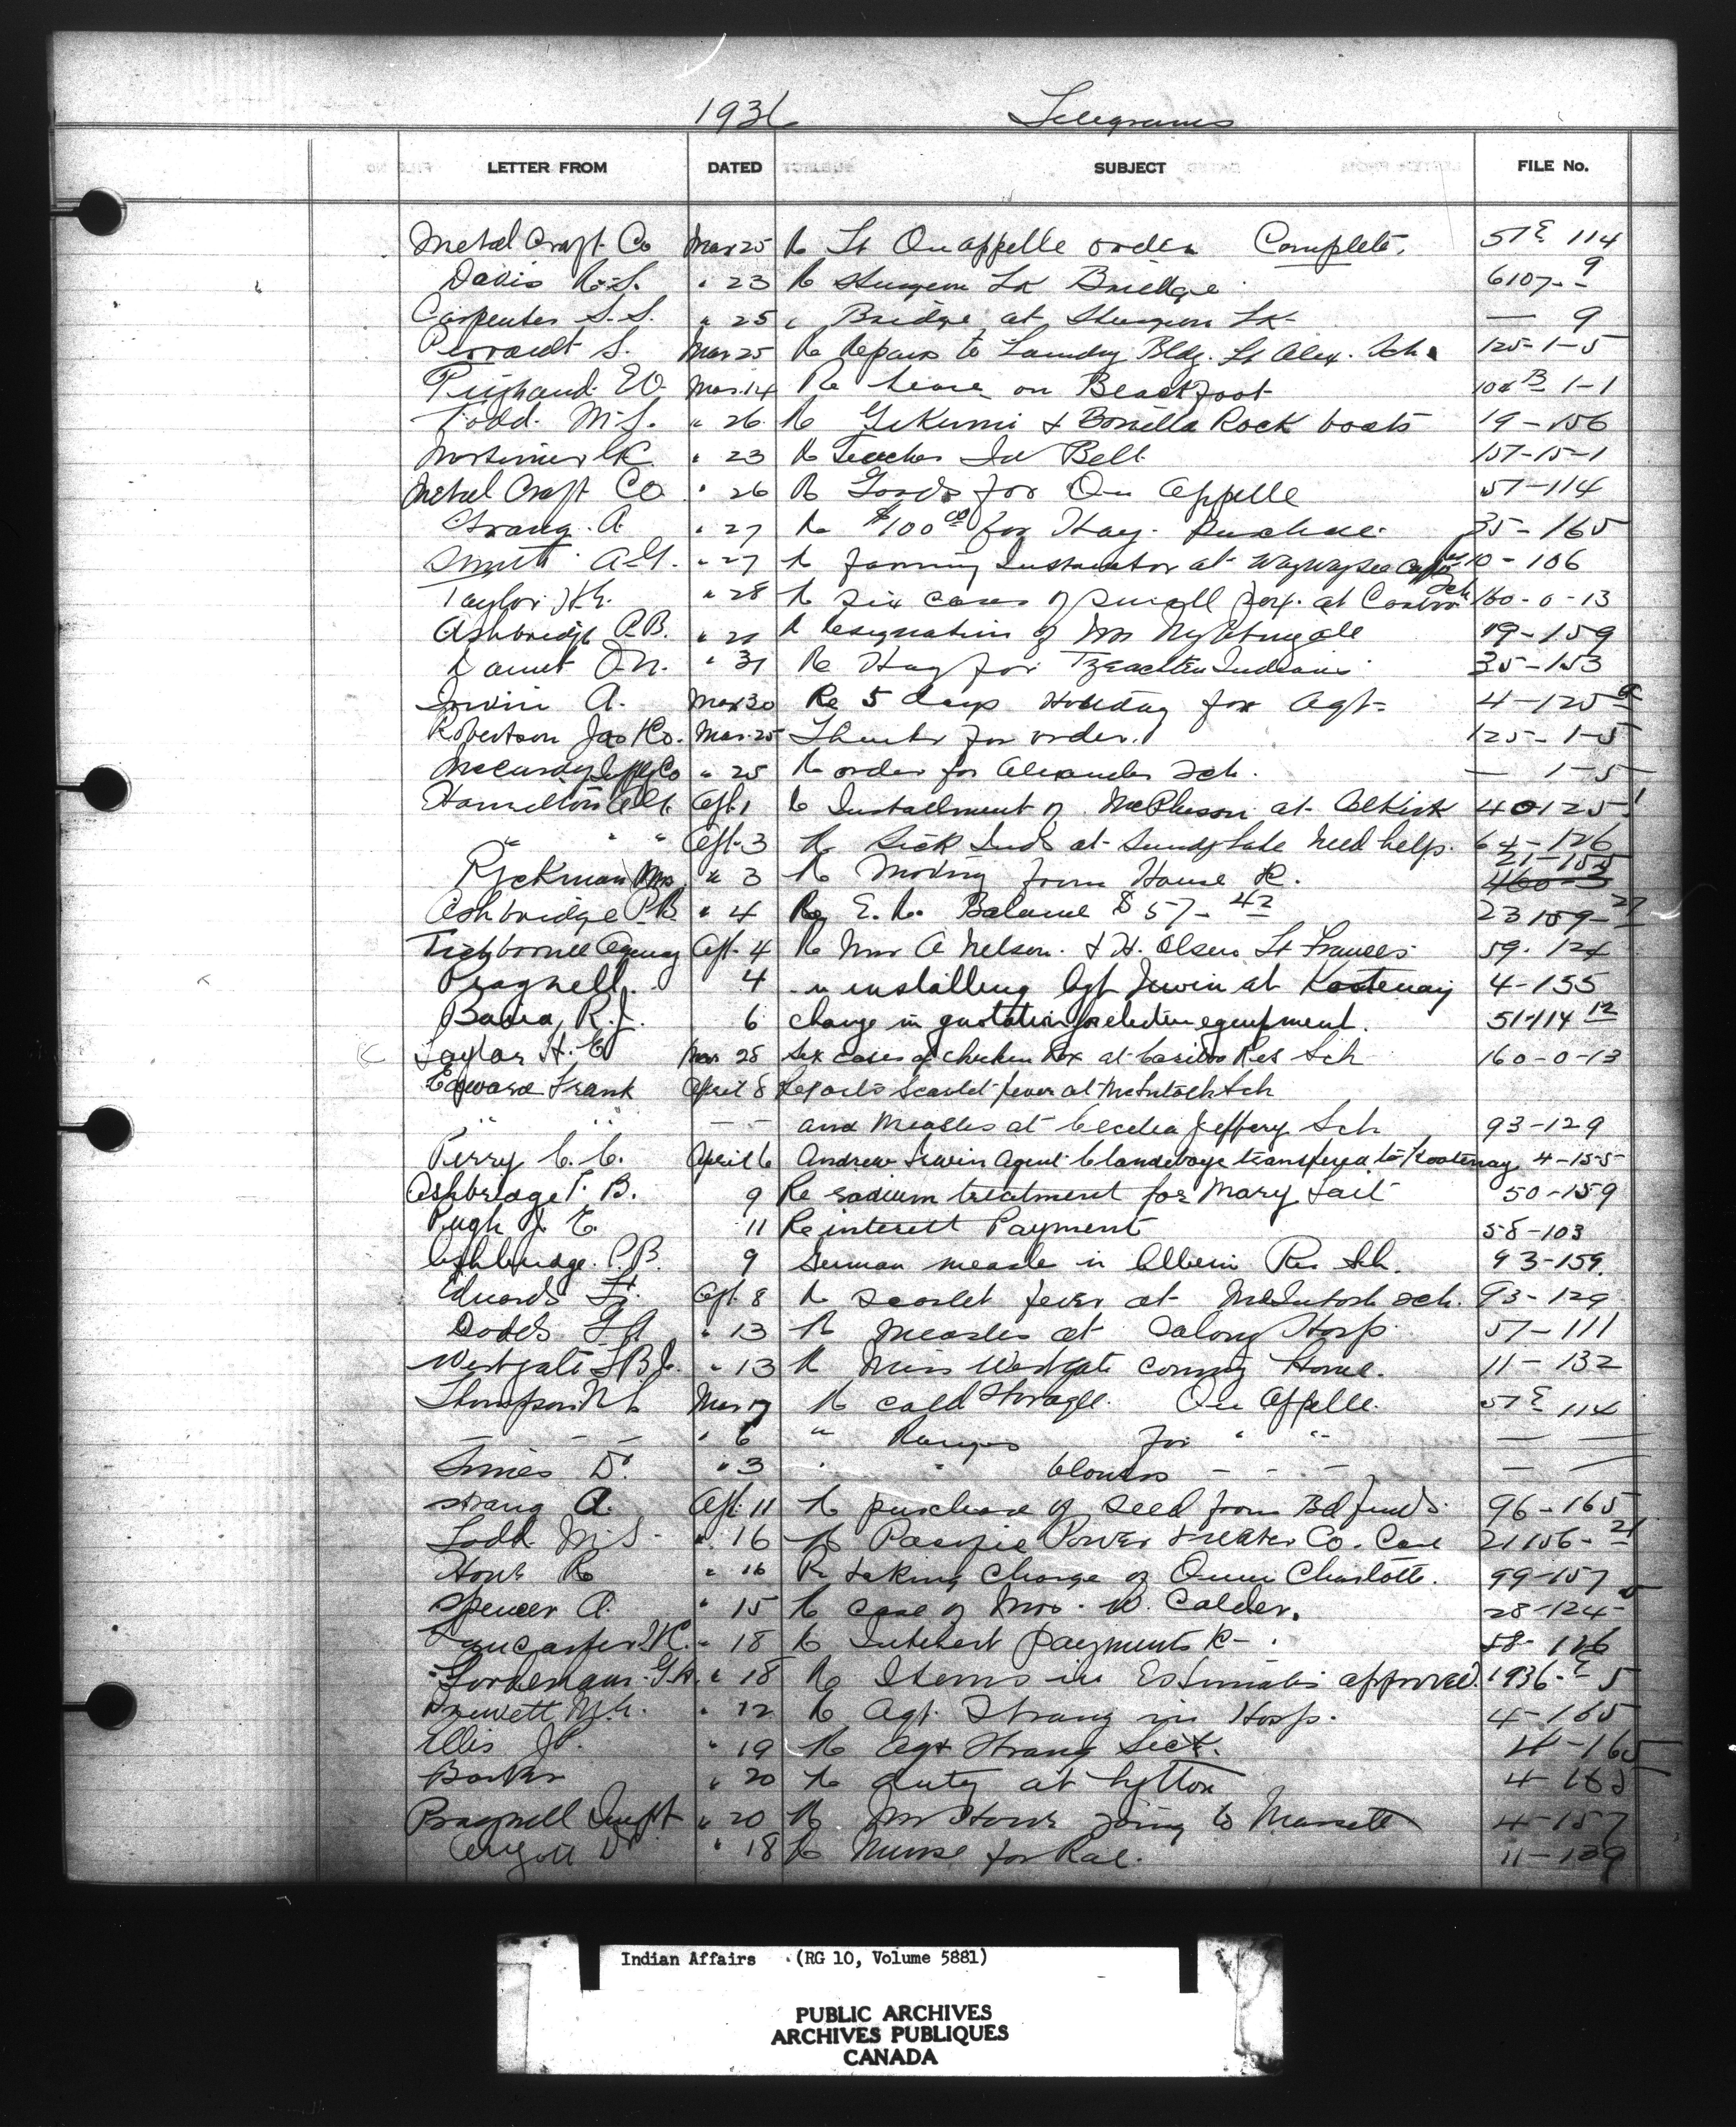 1936 Telegrams
LETTER FROM DATED SUBJECT FILE No.
Metal Craft Co Mar 25 Re Ft Qu appelle order Complete. 57 E 114
Davis R.S. " 23 Re Sturgeon Lk Bridge 6107- 9
Carpenter S.S. " 25 " Bridge at Sturgeon Lk - — 9
Perrault S. Mar 25 Re Repairs to Laundry Bldg. Ft Alex. Sch. 125-1-5
Mar. 14 Re lease on Blackfoot 1-1
Todd. M.S. " 26 Re Gikumi & Bonilla Rock boats 19-156
Mortimer " 23 Re Teacher Id Bell 157-15-1
Metal Craft Co. " 26 Re Goods for Qu Appelle 57-114
Strang. A. " 27 Re $100 00 for Hay. purchase. 35-165
Smith A.G. " 27 Re farming Instructor at Waywayseecappo 10-106
Taylor H.E. " 28 Re six cases of small pox. at Cariboo Sch 160-0-13
Ashbridge P.B. Re Resignation of Mrs Nightingale 19-159
" 31 Re Hay for Tzeachten Indians 35-153
Irwin A. Mar 30 Re 5 days Holiday for Agt- 4-125
Robertson Jas Co. Mar. 25 Thanks for order. 125-1-5
McCurdy Supply Co " 25 Re order for Alexander Sch. — 1-5
Hamilton A.G. Apl. 1 Re Installment of McPherson at Selkirk 40125
" " " Apl. 3 Re Sick Inds at Sandy Lake need help. 64-126
Ryckman Mrs " 3 Re Moving from House Re. 21-154 460-3
Ashbridge P.B. " 4 Re E.R. Balance $57-42 23 159-27
Tichbourne Agency Apl. 4 Re Mrs A Nelson. & H. Olsen Ft Frances 59. 124
Pragnell. 4 " installing Agt Irwin at Kootenay 4-155
Badea, R.J. 6 change in quotation for electric equipment. 51-114 12
Taylor H. E Mar 28 six cases of chicken Pox at Cariboo Res Sch 160-0-13
Edward Frank April 8 Reports Scarlet fever at McIntosh Sch
" " - - and Measles at Cecelia Jeffery Sch 93-129
Perry C. C. April 6 Andrew Irwin Agent Clandeboye transfered to Kootenay 4-155
Ashbridge P. B. 9 Re radium treatment for Mary Tait 50-159
Pugh J. E. 11 Re interest Payment 58-103
Ashbridge. P.B. 9 German measle in Alberni Res Sch. 93-159.
Edwards Fr. Apl. 8 Re Scarlet fever at McIntosh Sch. 93-129
Dodds " 13 Re Measles at Hosp. 57-111
Westgate T.B.R. " 13 Re Miss Westgate coming home. 11-132
Thompson Mar 17 Re cold storage. Qu Appelle. 57 E 114
— — — " 6 " Ranges for " " — —
Simes D. " 3 " " blowers - - - — —
Strang A. Apl. 11 Re purchase of seed from Bd funds. 96-165
Todd. M.S. " 16 Re Pacific Power & Water Co. Case 21156-21
Howe R " 16 Re taking charge of Queen Charlotte. 99-157
Spencer A. " 15 Re case of Mrs. W. Calder. 28-124-
" 18 Re Interest payments R- 58-126
" 18 Re Items in Estimates approved. 1936-E 5
" 12 Re Agt. Strang in Hosp. 4-165
Ellis J.P. " 19 Re Agt Strang Sick. 4-165
Barber " 20 Re duty at Lytton 4-165
Pragnell Inspt " 20 Re Mr Howe going to Massett 4-157
" 18 Re Nurse for Rae. 11-129
Indian Affairs (RG 10, Volume 5881)
PUBLIC ARCHIVES
ARCHIVES PUBLIQUES
CANADA